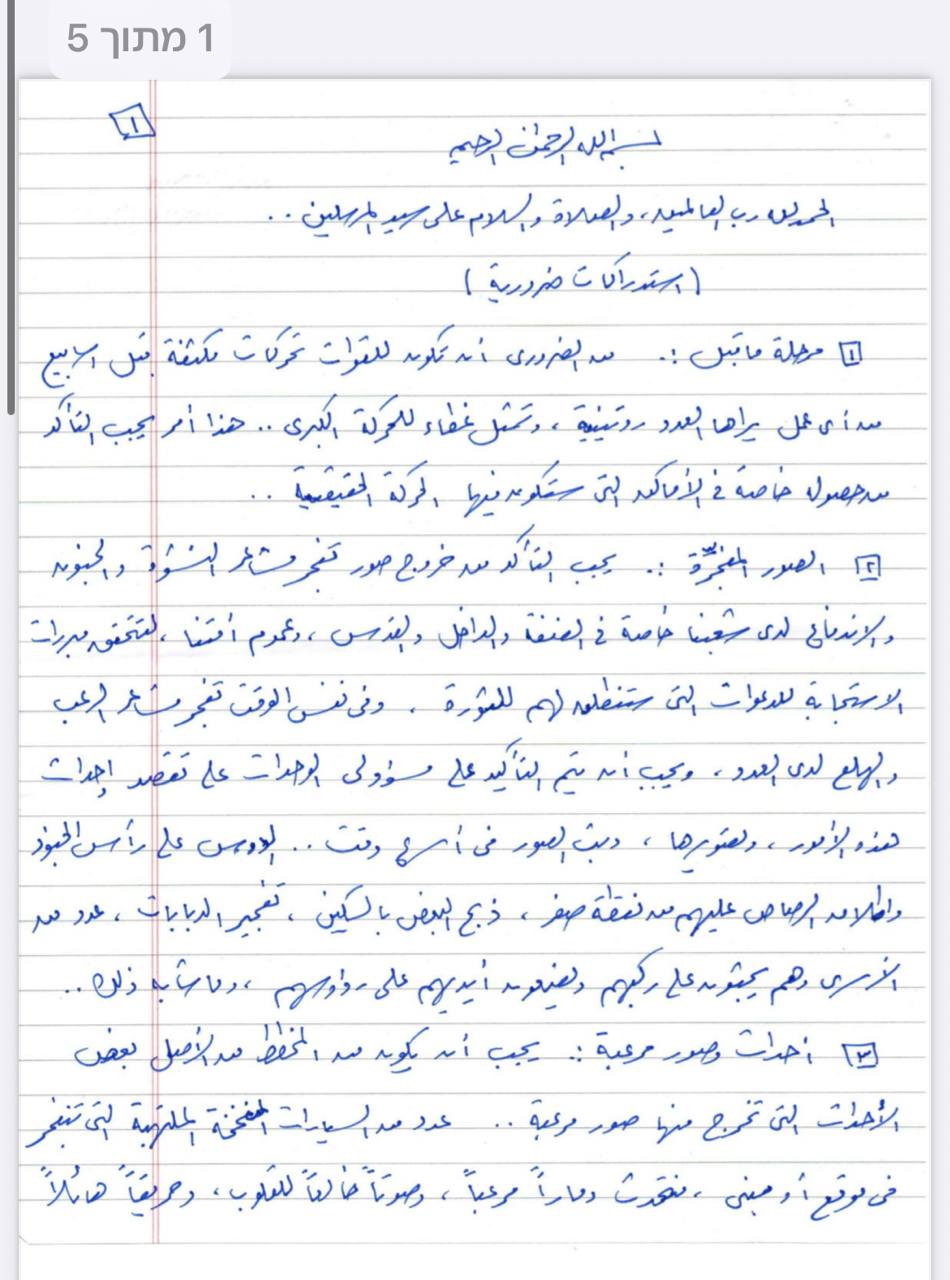 1 מתוך 5
١
بسم الله الرحمن الرحيم
الحمد لله رب العالمين، والصلاة والسلام على سيد المرسلين ..
(استدراكات ضرورية)
١ مرحلة ما قبل :. من الضروري أن تكون للقوات تحركات مكثفة قبل أسابيع
من أي عمل يراها العدو روتينية، وتمثل غطاء للحركة الكبرى .. هذا أمر يجب التأكد
من حصوله خاصة في الأماكن التي ستكون فيها الحركة الحقيقية ..
٢ الصور المفجّرة :. يجب التأكد من خروج صور تفجر مشاعر النشوة والجنون
والاندفاع لدى شعبنا خاصة في الضفة والداخل والقدس، وعموم أمتنا، لتتحقق مبررات
الاستجابة للدعوات التي ستنطلق لهم للثورة، وفي نفس الوقت تفجر مشاعر الرعب
والهلع لدى العدو، ويجب أن يتم التأكيد على مسؤولي الوحدات على تقصد إحداث
هذه الأمور، وتصويرها، وبث الصور في أسرع وقت .. الدوس على رأس الجنود
وإطلاق الرصاص عليهم من نقطة صفر، ذبح البعض بالسكين، تفجير الدبابات، عدد من
الأسرى وهم يجثون على ركبهم ويضعون أيديهم على رؤوسهم، وما شابه ذلك ..
٣ أحداث وصور مرعبة :. يجب أن يكون من المخطط من الأصل بعض
الأحداث التي تخرج منها صور مرعبة .. عدد من السيارات المفخخة الملتهبة التي تنفجر
في موقع أو مبنى، فتحدث دماراً مرعباً، وصوتاً خالعاً للقلوب، وحريقاً هائلاً